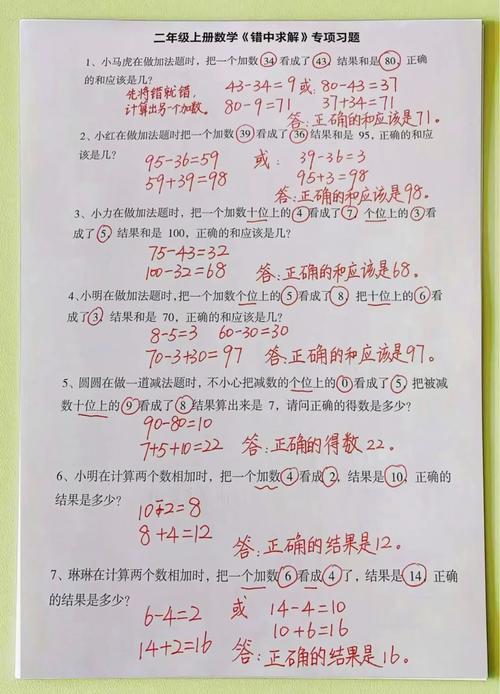 二年级上册数学《错中求解》专项习题
1、小马虎在做加法题时，把一个加数34看成了43，结果和是80，正确
的和应该是几？
43-34=9 或：80-43=37
先将错就错，
计算出另一个加数。
80-9=71 37+34=71
答：正确的和应该是71。
2、小红在做加法题时把一个加数39看成了36结果和是 95，正确的和应
该是几？
95-36=59 或：39-36=3
59+39=98 95+3=98
答：正确的和应该是98。
3、小力在做加法题时，把一个加数十位上的4看成了7 个位上的3看
成了5，结果和是 100，正确的和应该是几？
75-43=32
100-32=68 答：正确的和应该是68。
4、小明在做加法题时，把一个加数个位上的5看成了8 把十位上的6看
成了3，结果和是 70，正确的和应该是几？
8-5=3 60-30=30
70-3+30=97 答：正确的和应该是97。
5、圆圆在做一道减法题时，不小心把减数的个位上的0看成了5，把被减
数十位上的9看成了8结果算出来是 7，请问正确的得数是多少？
90-80=10
7+5+10=22 答：正确的得数22。
6、小明在计算两个数相加时，把一个加数4看成2，结果是10，正确的
结果是多少？
10-2=8
8+4=12
答：正确的结果是12。
7、琳琳在计算两个数相加时，把一个加数6看成4了，结果是14，正确
的结果是多少？
6-4=2 或 14-4=10
14+2=16 10+6=16
答：正确的结果是16。